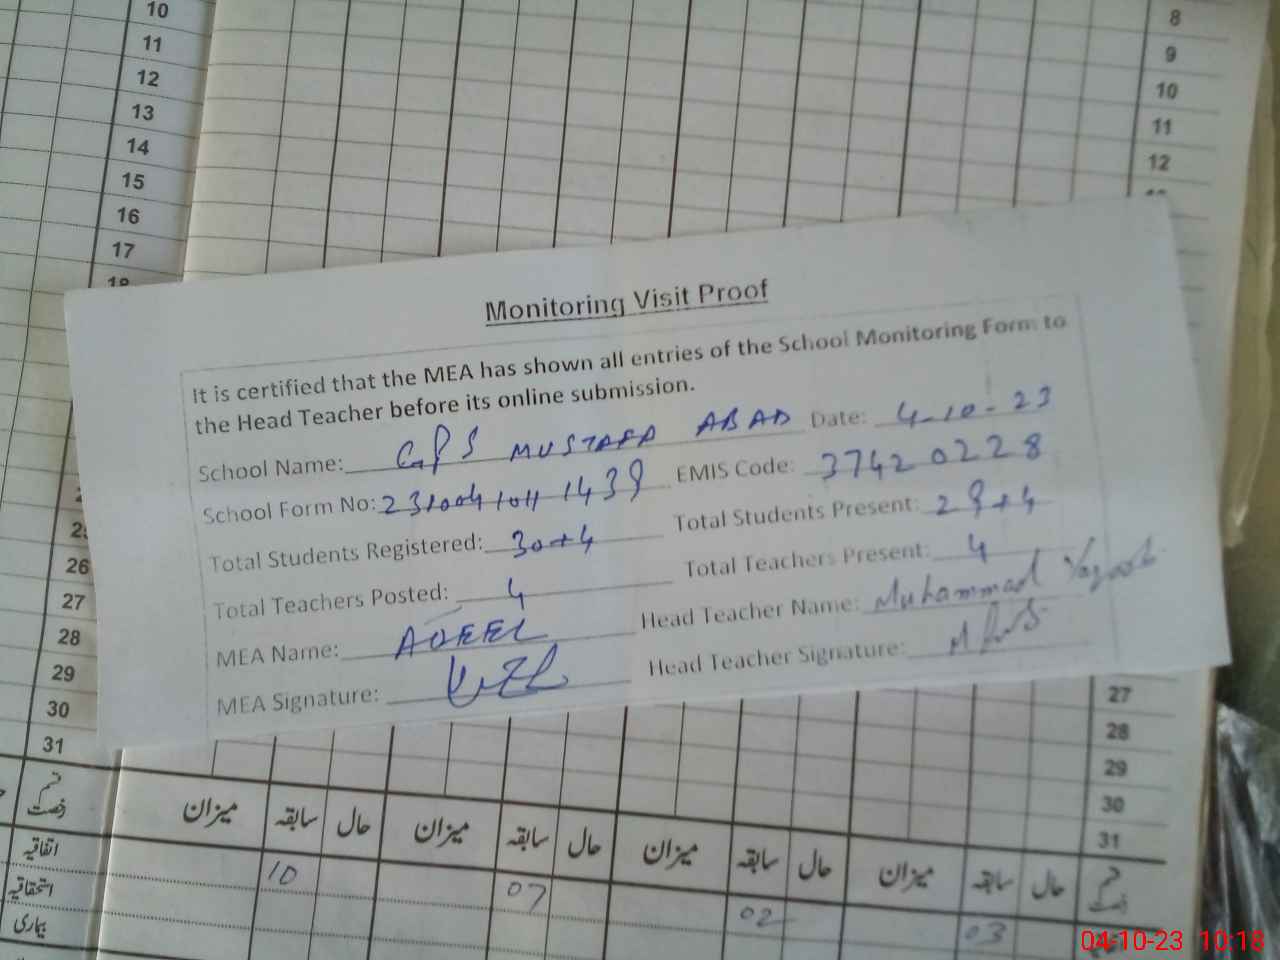 10
11
12
13
14
15
16
17
18
8
9
10
11
12
Monitoring Visit Proof
It is certified that the MEA has shown all entries of the School Monitoring Form to
the Head Teacher before its online submission.
School Name: GPS MUSTAFA ABAD Date: 4-10-23
School Form No: EMIS Code: 37420228
Total Students Registered: 30+4 Total Students Present: 29+4
Total Teachers Posted: 4 Total Teachers Present: 4
MEA Name: AQEEL Head Teacher Name: Muhammad
MEA Signature: Head Teacher Signature:
26
27
28
29
30
31
27
28
29
30
31
قسم رخصت میزان سابقہ حال میزان سابقہ حال میزان سابقہ حال میزان سابقہ حال قسم رخصت
اتفاقیہ 10 07 02 03
استحقاقیہ
بیماری
04-10-23 10:18